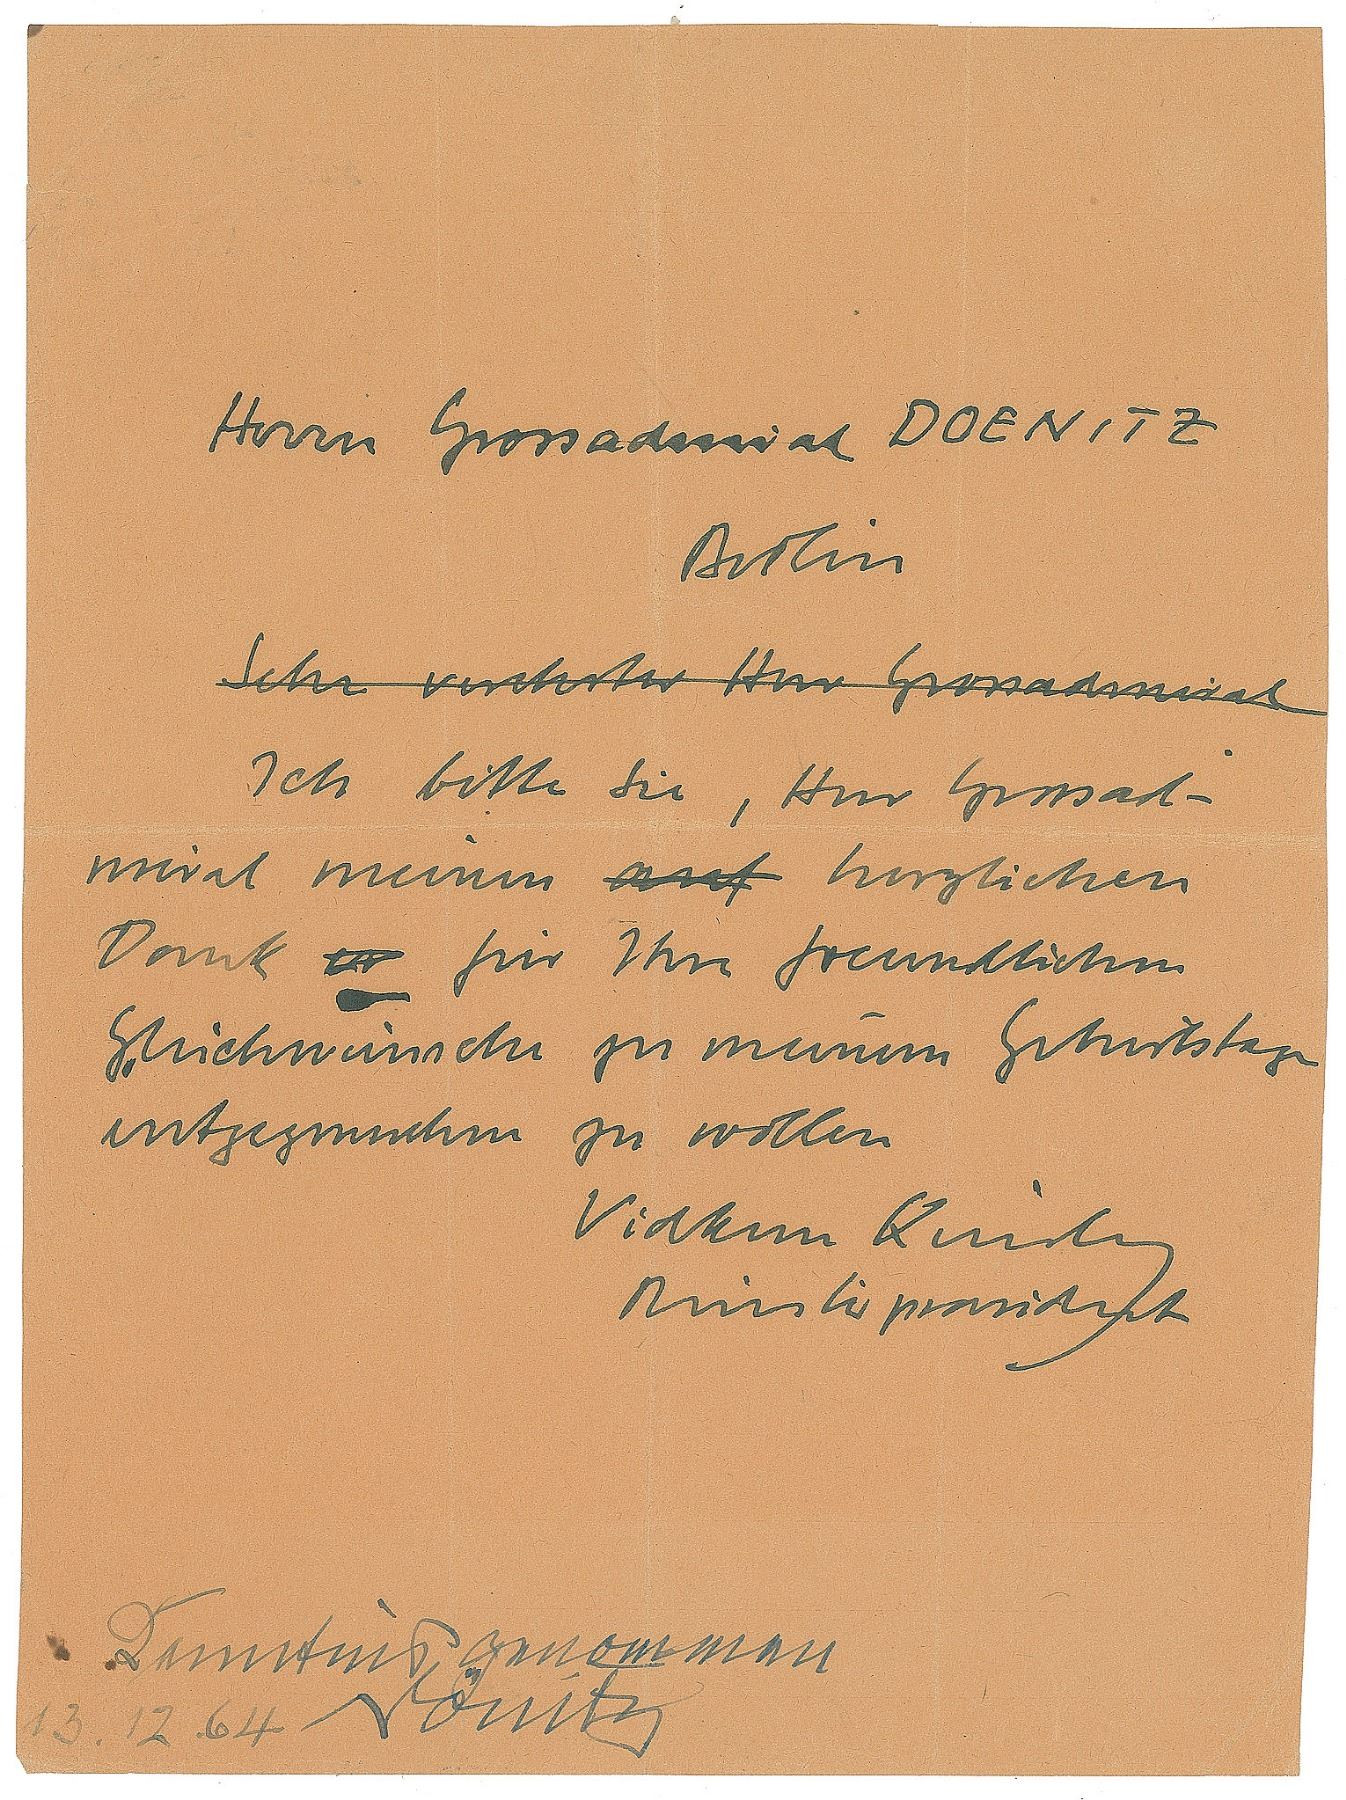 Herrn Grossadmiral DOENITZ
Berlin
Sehr verehrter Herr Grossadmiral
Ich bitte Sie, Herr Grossad-
miral meinen auf herzlichen
Dank für Ihre freundlichen
Glückwünsche zu meinem Geburtstage
entgegennehmen zu wollen
Vidkun Quisling
Ministerpraesident
Kenntnis genommen
13.12.64 Dönitz